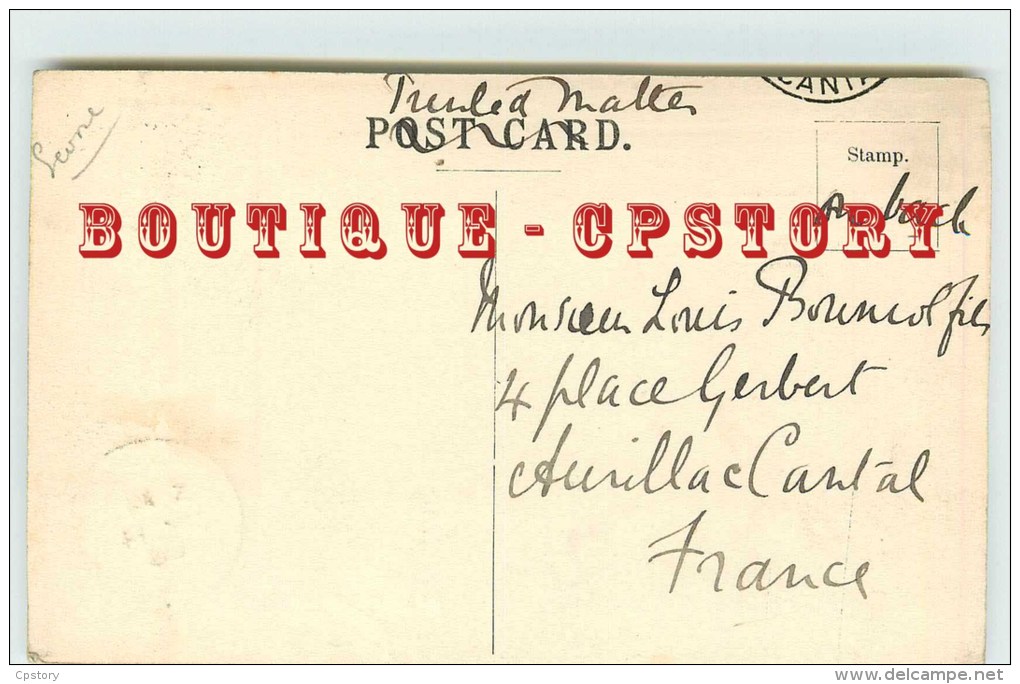 CANTAL
Printed Matter
POST CARD.
Stamp.
BOUTIQUE - CPSTORY
back
Monsieur Louis fils
4 place Gerbert
Aurillac Cantal
France
Cpstory
www.delcampe.net